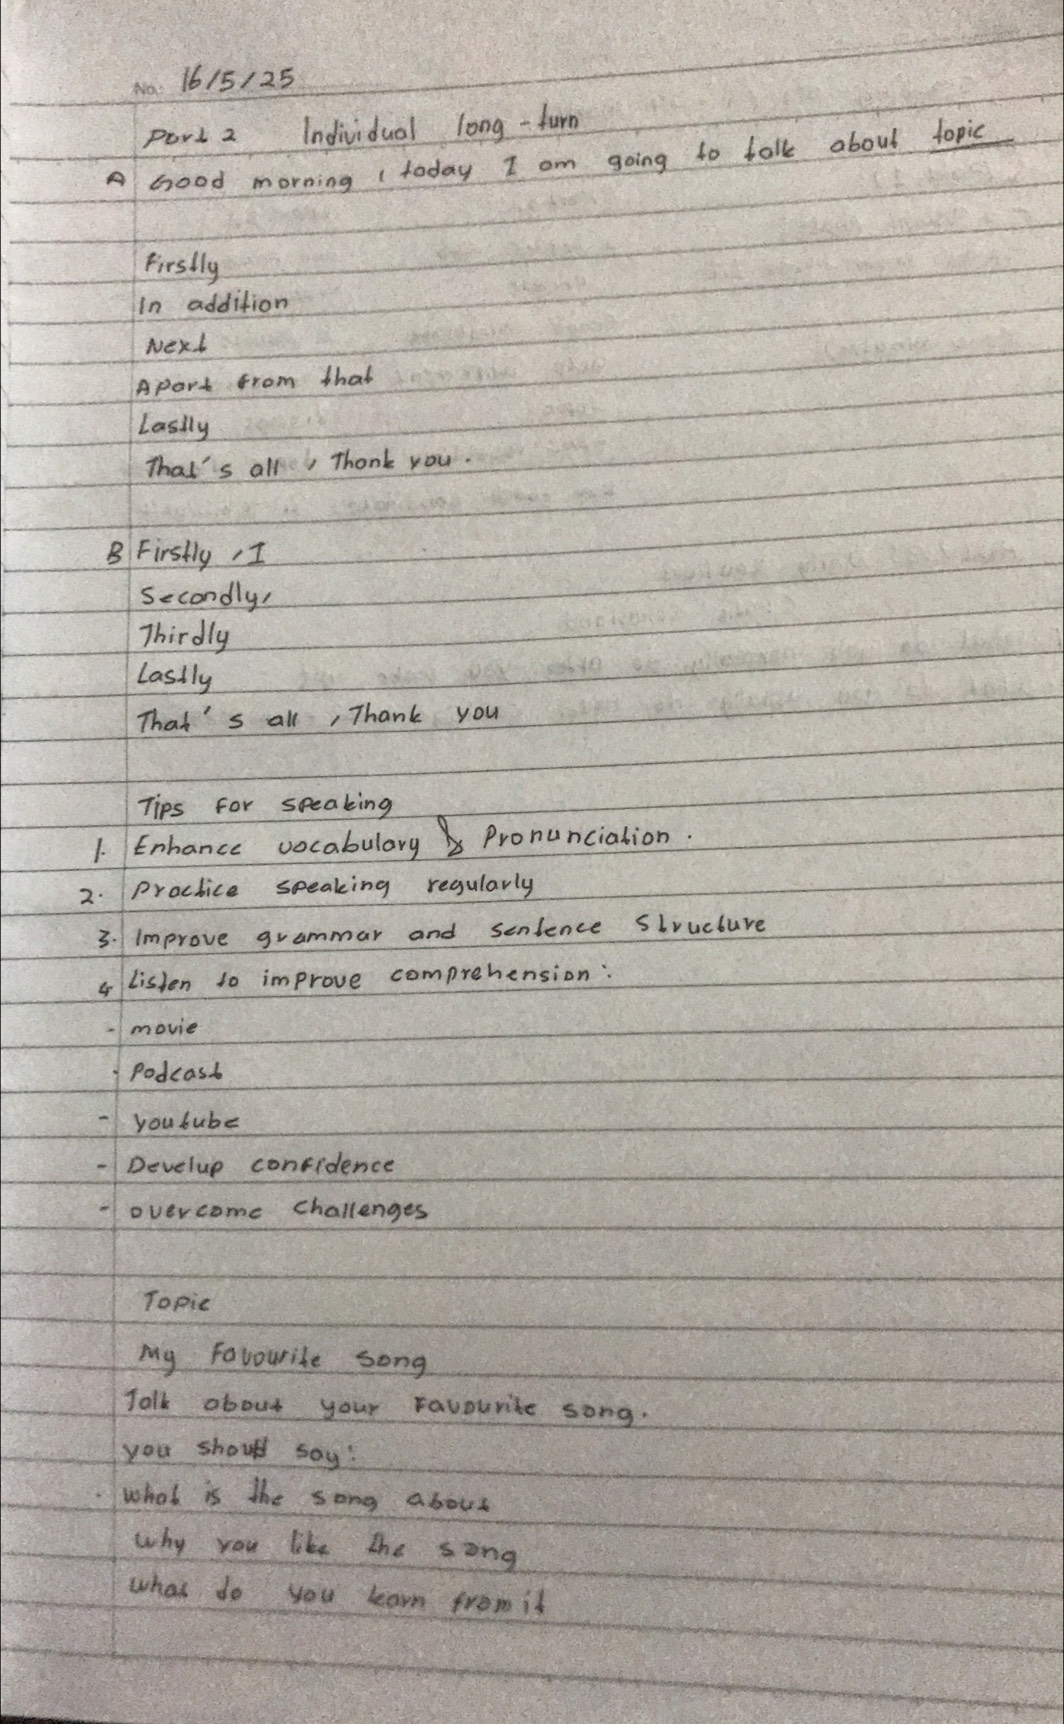 No: 16/5/25
Part 2 Individual long-turn
A Good morning, today I am going to talk about topic
Firstly
In addition
Next
Apart from that
Lastly
That's all, Thank you.
B Firstly, I
Secondly,
Thirdly
Lastly
That's all, Thank you
Tips for speaking
1. Enhance vocabulary & Pronunciation.
2. Practice speaking regularly
3. Improve grammar and sentence structure
4 Listen to improve comprehension:
- movie
- Podcast
- youtube
- Develup confidence
- overcome challenges
Topic
My Favourite song
Talk about your Favourite song.
you should say:
. what is the song about
why you like the song
what do you learn from it